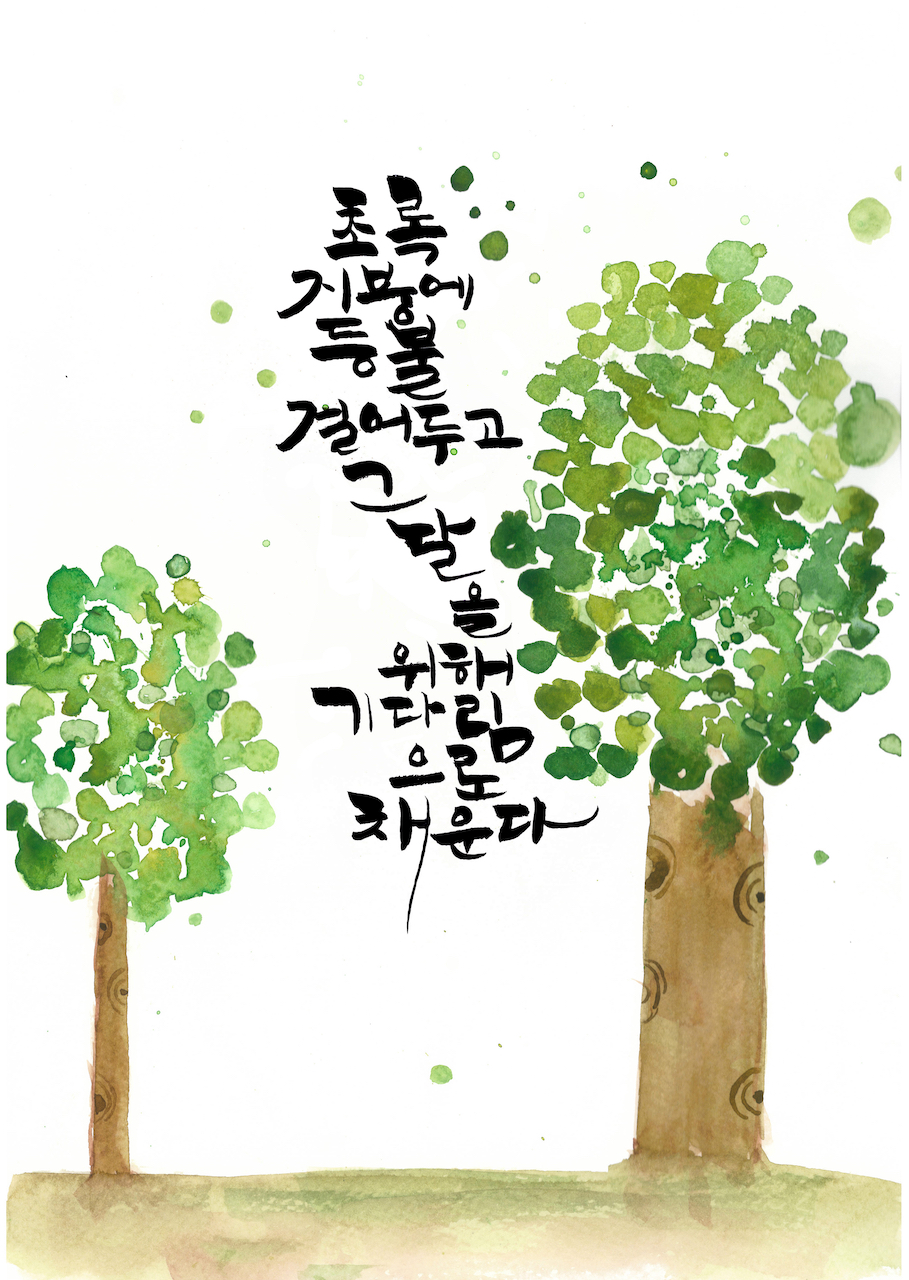 초록
지붕에
등불
걸어두고
그
달
을
위해
기다림
으로
채운다